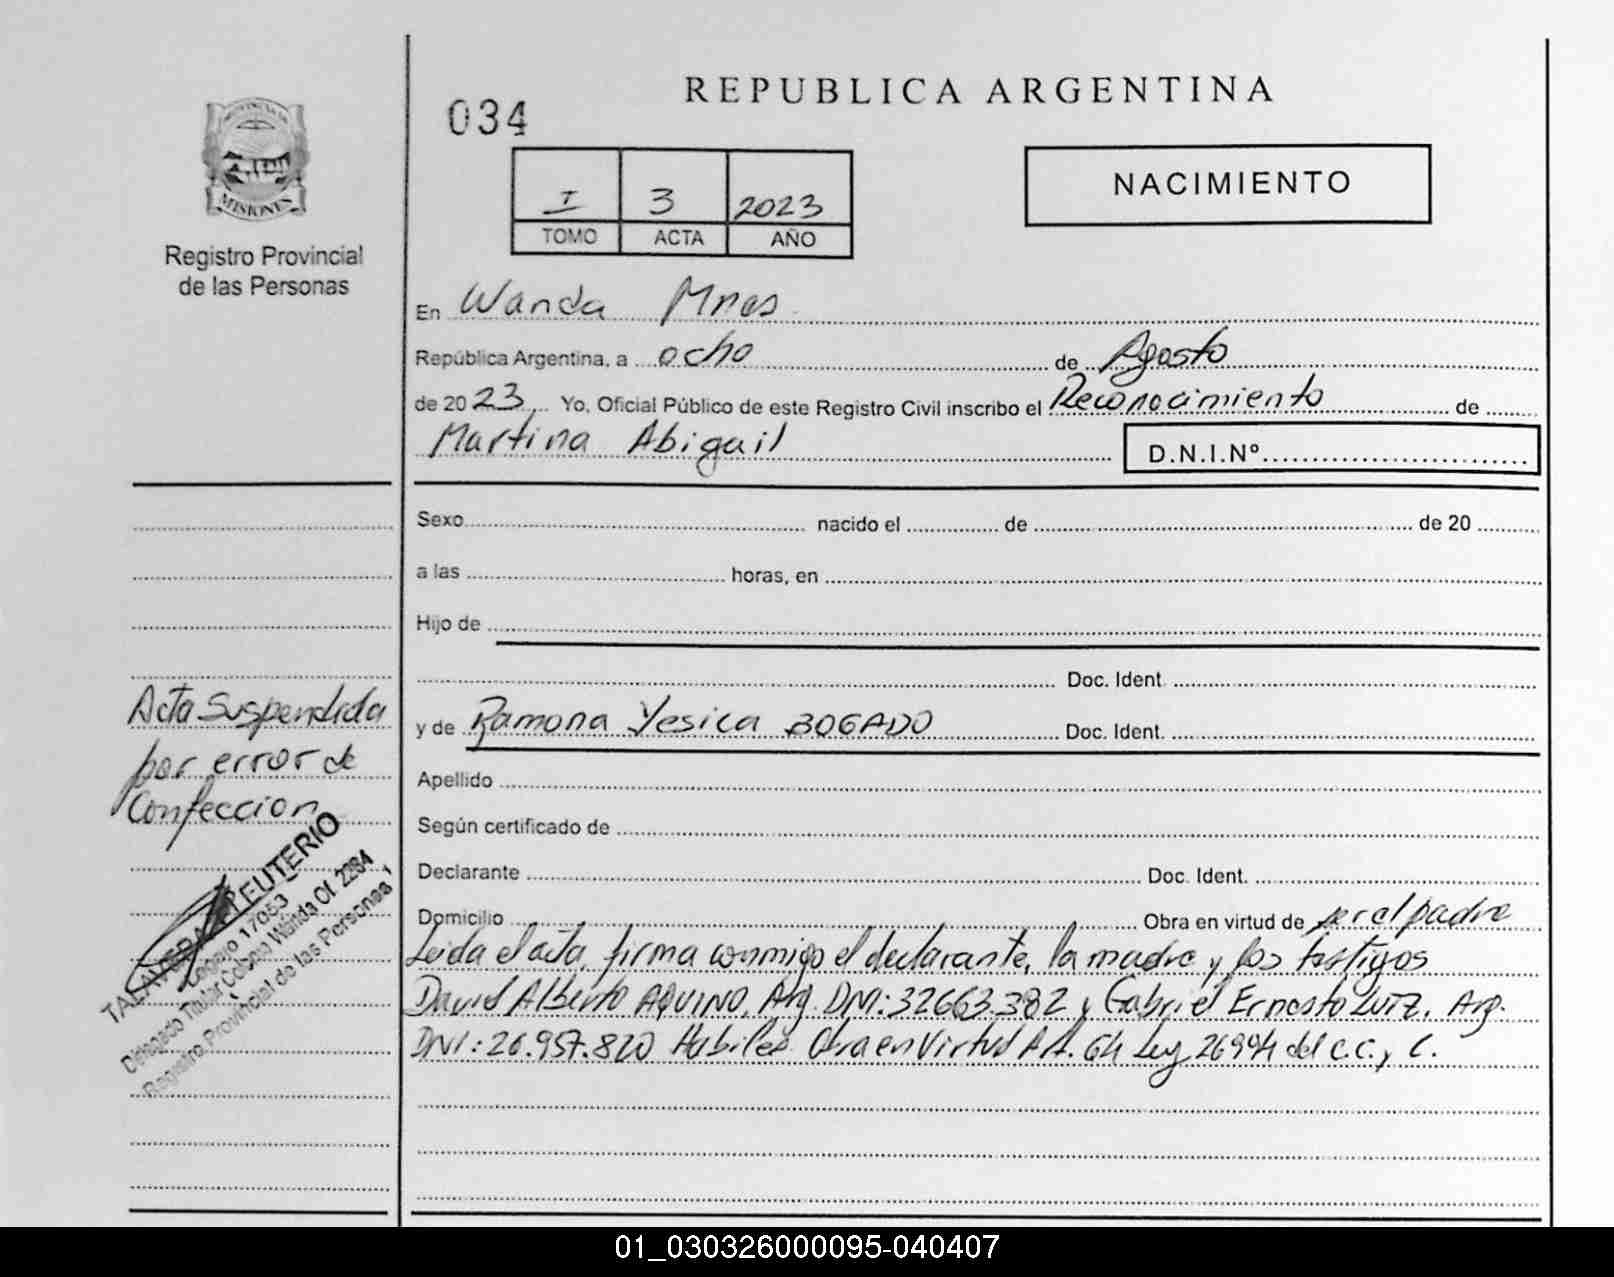 REPUBLICA ARGENTINA
034
NACIMIENTO
I 3 2023
TOMO ACTA AÑO
PROVINCIA DE
MISIONES
Registro Provincial
de las Personas
En Wanda Mnes
República Argentina, a ocho de Agosto
de 2023 Yo, Oficial Público de este Registro Civil inscribo el Reconocimiento de
Martina Abigail D.N.I.Nº
Sexo nacido el de de 20
a las horas, en
Hijo de
Doc. Ident.
y de Ramona Yesica BOGADO Doc. Ident.
Apellido
Según certificado de
Declarante Doc. Ident.
Domicilio Obra en virtud de ser el padre
Leida el acta, firma conmigo el declarante, la madre y los testigos
David Alberto AQUINO, Arg. DNI: 32663.382 y Gabriel Ernesto LUTZ, Arg.
DNI: 26.957.820 Habiles Obra en Virtud Art. 64 Ley 26994 del C.C. y C.
Acta Suspendida
por error de
Confeccion
TALAVERA ELEUTERIO
Legajo 17053
Delegado Titular Colonia Wanda Of. 2284
Registro Provincial de las Personas
01_030326000095-040407